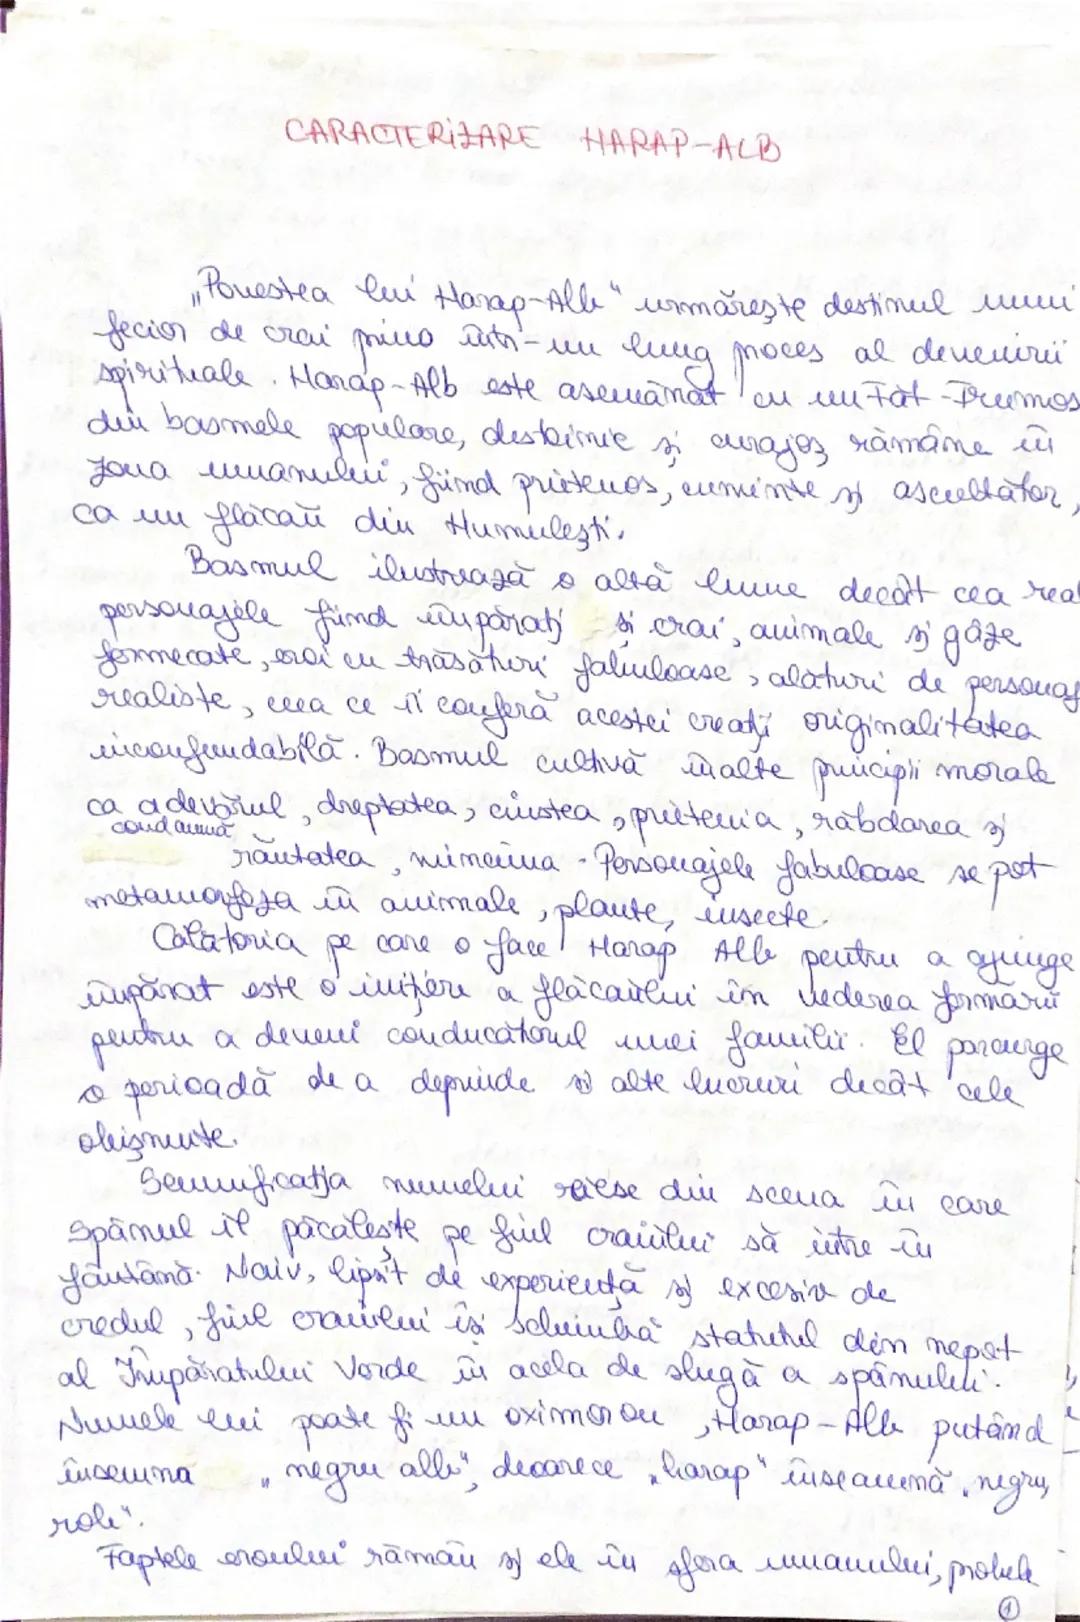 CARACTERIZARE HARAP-ALB
„Povestea lui Harap-Alb" urmărește destinul unui
fecior de crai prins într-un lung proces al devenirii
spirituale. Harap-Alb este asemănat cu un Făt-Frumos
din basmele populare, destoinic și curajos, rămâne în
zona umanului, fiind prietenos, cuminte și ascultător,
ca un flăcău din Humulești.
Basmul ilustrează o altă lume decât cea rea
personajele fiind împărați și crai, animale și gâze
fermecate, eroi cu trăsături fabuloase, alături de personaj
realiste, ceea ce îi conferă acestei creații originalitatea
inconfundabilă. Basmul cultivă înalte principii morale
ca adevărul, dreptatea, cinstea, prietenia, răbdarea și
condamnă
răutatea, minciuna. Personajele fabuloase se pot
metamorfoza în animale, plante, insecte.
Călătoria pe care o face Harap Alb pentru a ajunge
împărat este o inițiere a flăcăului în vederea formării
pentru a deveni conducătorul unei familii. El parcurge
o perioadă de a deprinde și alte lucruri decât cele
obișnuite.
Semnificația numelui reiese din scena în care
spânul îl păcălește pe fiul craiului să intre în
fântână. Naiv, lipsit de experiență și excesiv de
credul, fiul craiului își schimbă statutul din nepot
al Împăratului Verde în acela de slugă a spânului.
Numele lui poate fi un oximoron, Harap-Alb putând
însemna „negru alb", deoarece „harap" înseamnă „negru,
rob".
Faptele eroului rămân și ele în sfera umanului, probele
1